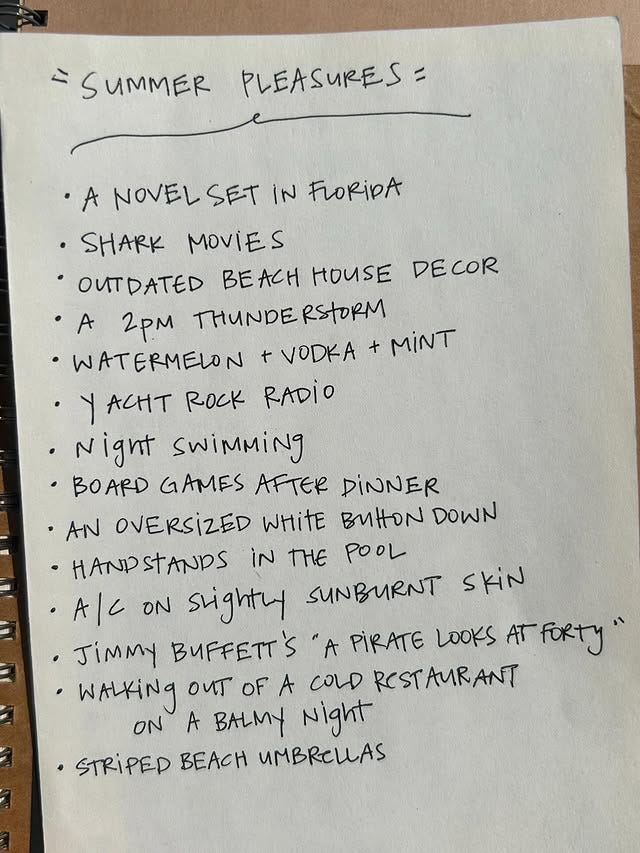 = SUMMER PLEASURES =
• A NOVEL SET IN FLORIDA
• SHARK MOVIES
• OUTDATED BEACH HOUSE DECOR
• A 2PM THUNDERSTORM
• WATERMELON + VODKA + MINT
• YACHT ROCK RADIO
• Night SWIMMING
• BOARD GAMES AFTER DINNER
• AN OVERSIZED WHITE BUTTON DOWN
• HANDSTANDS IN THE POOL
• A/C ON Slightly SUNBURNT SKIN
• JIMMY BUFFETT'S "A PIRATE LOOKS AT FORTY"
• WALKING OUT OF A COLD RESTAURANT
ON A BALMY Night
• STRIPED BEACH UMBRELLAS